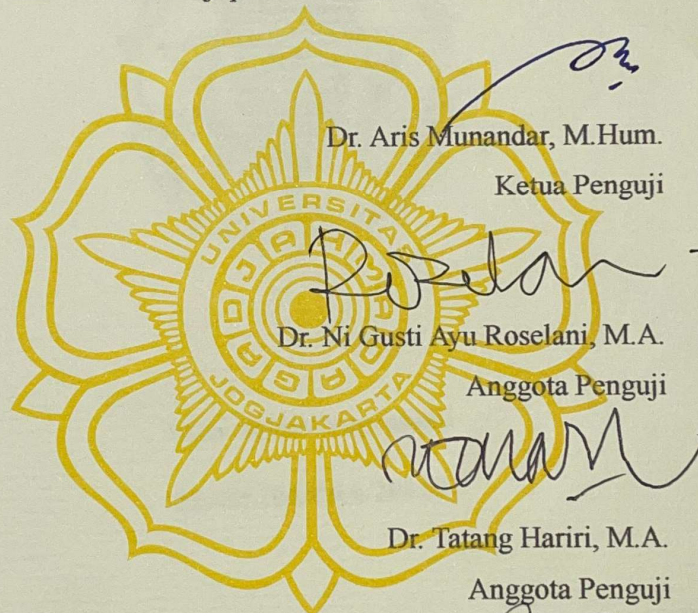 Dr. Aris Munandar, M.Hum.
Ketua Penguji
UNIVERSITAS
GADJAH MADA
JOGJAKARTA
Dr. Ni Gusti Ayu Roselani, M.A.
Anggota Penguji
Dr. Tatang Hariri, M.A.
Anggota Penguji